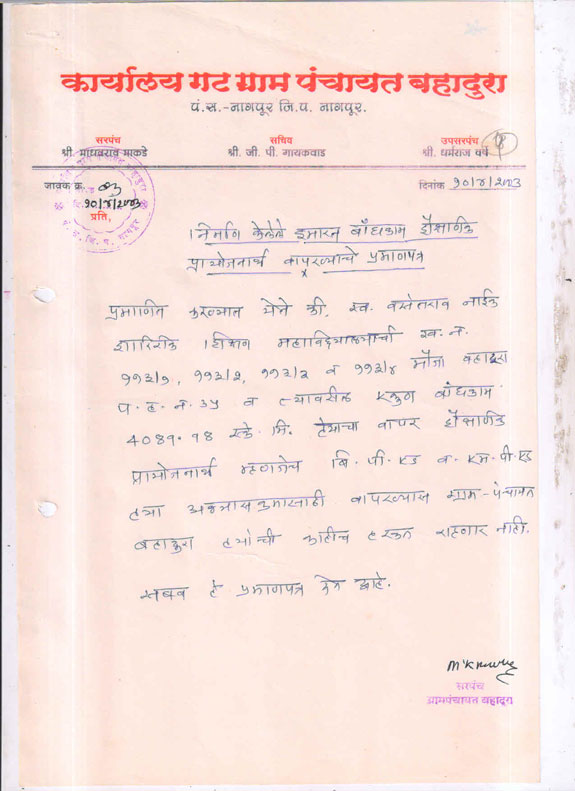 कार्यालय गट ग्राम पंचायत बहादुरा
पं.स.-नागपूर जि.प. नागपूर.
सरपंच सचिव उपसरपंच
श्री. माधवराव माकडे श्री. जी. पी. गायकवाड श्री. धर्मराज
जावक क्र. ०३ दिनांक १०/४/२००३
१०/४/२००३
प्रति,
निर्माण केलेले इमारत बांधकाम शैक्षणिक
प्रायोजनार्थ वापरण्याचे प्रमाणपत्र
प्रमाणित करण्यात येते की, स्व. वसंतराव नाईक
शारिरीक शिक्षण महाविद्यालयाची ख. नं.
११३/१, ११३/२, ११३/३ व ११३/४ मौजा बहादुरा
प. ह. नं. ३५ व त्यावरील एकुण बांधकाम
4089.18 स्के. मि. त्याचा वापर शैक्षणिक
प्रायोजनार्थ म्हणजेच बि. पी. एड व एम. पी. एड
ह्या अभ्यासक्रमासाठी वापरण्यास ग्राम-पंचायत
बहादुरा ह्यांची काहीच हरकत राहणार नाही.
सबब हे प्रमाणपत्र देत आहे.
सरपंच
ग्रामपंचायत बहादुरा